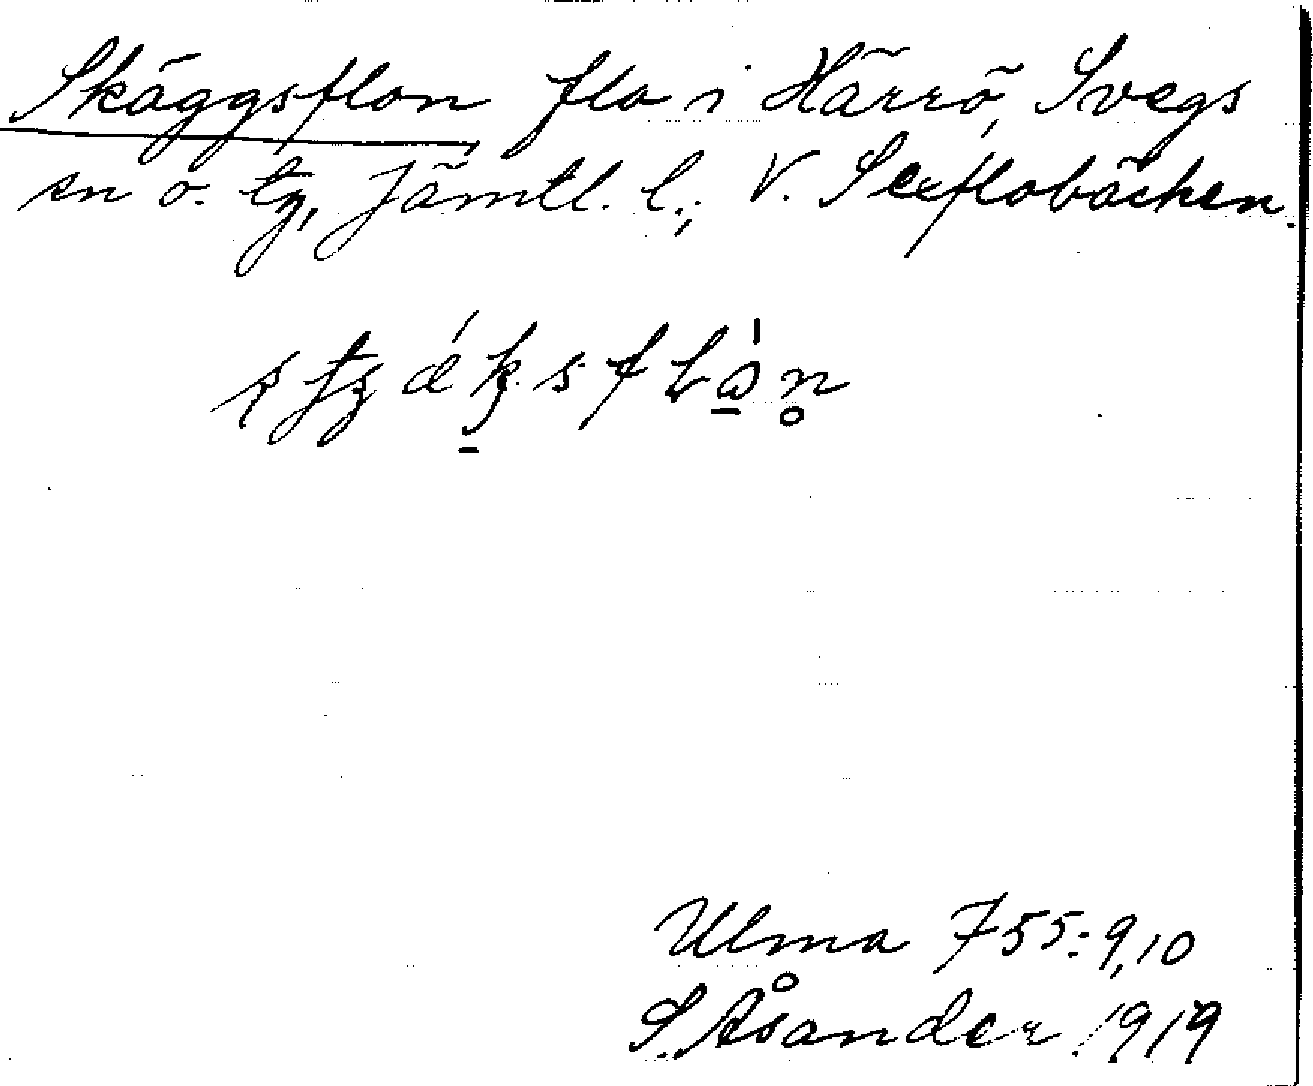 Skäggsflon flo i Härrö, Svegs
sn o. tg, Jämtl. l.; V. Sexflobäcken.
Ulma 755:9,10
S. Åsander 1919